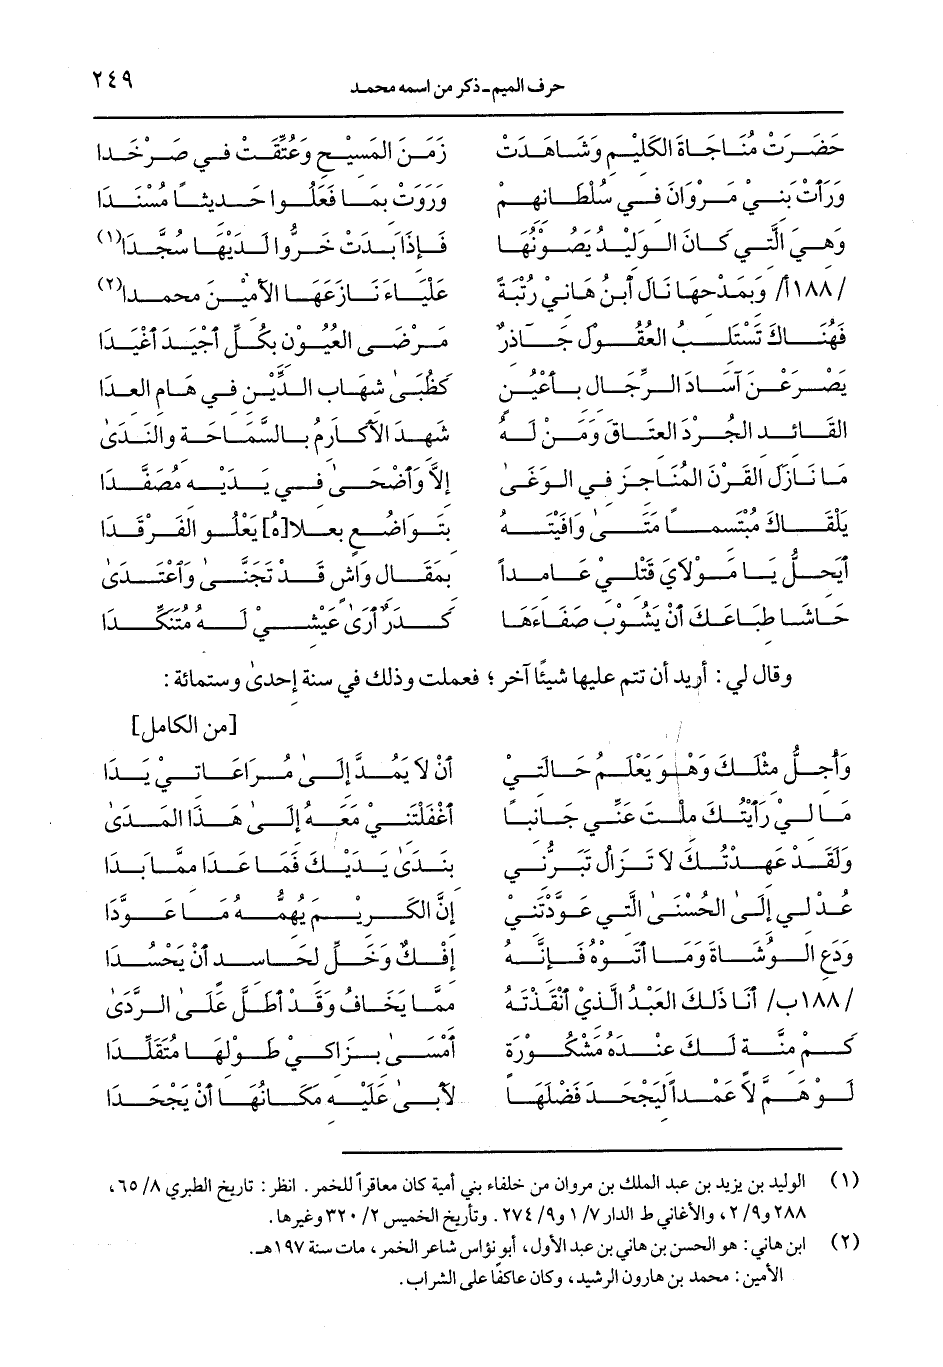 حرف الميم ـ ذكر من اسمه محمد ٢٤٩
حَضَرَتْ مُنَاجَاةَ الكَلِيْمِ وَشَاهَدَتْ زَمَنَ المَسِيْحِ وَعُتِّقَتْ في صَرْخَدا
وَرَأَتْ بَنِيْ مَرْوَانَ فِي سُلْطَانِهِمْ وَرَوَتْ بِمَا فَعَلُوا حَدِيثاً مُسْنَدَا
وَهِيَ الَّتِي كَانَ الوَلِيْدُ يَصُوْنُهَا فَإِذَا بَدَتْ خَرُّوا لَدَيْهَا سُجَّدَا(١)
/١٨٨أ/ وَبِمَدْحِهَا نَالَ أبنُ هَانِي رُتْبَةً عَلْيَاءَ نَازَعَهَا الأمِيْنَ محمدا(٢)
فَهُنَاكَ تَسْتَلِبُ العُقُولَ جَآذِرٌ مَرْضَى العُيُوْنِ بِكُلِّ أَجْيَدَ أَغْيَدَا
يَصْرَعْنَ آسَادَ الرِّجَالِ بِأَعْيُنٍ كَظُبَىٰ شِهَابِ الدِّيْنِ في هَامِ العِدَا
القَائِدِ الجُرْدَ العِتَاقَ وَمَنْ لَهُ شَهِدَ الأكَارِمُ بِالسَّمَاحَةِ والنَّدَىٰ
مَا نَازَلَ القَرْنَ المُنَاجِزَ في الوَغَىٰ إلاَّ وَأَضْحَىٰ فِي يَدَيْهِ مُصَفَّدَا
يَلْقَاكَ مُبْتَسِمَاً مَتَىٰ وَافَيْتَهُ بِتَوَاضُعٍ بِعلا[هُ] يَعْلُو الفَرْقَدَا
أَيَحِلُّ يَا مَوْلاَيَ قَتْلِيْ عَامِداً بِمَقَالِ وَاشٍ قَدْ تَجَنَّىٰ وَأعْتَدَىٰ
حَاشَا طِبَاعَكَ أَنْ يَشُوْبَ صَفَاءَهَا كَدَرٌ أَرَىٰ عَيْشِي لَهُ مُتَنَكِّدَا
وقال لي: أريد أن تتم عليها شيئًا آخر؛ فعملت وذلك في سنة إحدىٰ وستمائة:
[من الكامل]
وَأَجِلُّ مِثْلَكَ وَهْوَ يَعْلَمُ حَالَتِيْ أَنْ لاَ يَمُدَّ إِلَىٰ مُرَاعَاتِيْ يَدَا
مَا لِيْ رَأَيْتُكَ مِلْتَ عَنِّي جَانِبًا أَغْفَلْتَنِيْ مَعَهُ إِلَىٰ هَذَا المَدَىٰ
وَلَقَدْ عَهِدْتُكَ لاَ تَزَالُ تَبَرُّنِي بِنَدَىٰ يَدَيْكَ فَمَا عَدَا مِمَّا بَدَا
عُدْ لِي إِلَى الحُسْنَىٰ الَّتِي عَوَّدْتَنِيْ إِنَّ الكَرِيْمِ يُهِمُّهُ مَا عَوَّدَا
وَدَعِ الوُشَاةَ وَمَا أَتَوْهُ فَإِنَّهُ إِفْكٌ وَخَلِّ لِحَاسِدٍ أَنْ يَحْسُدَا
/١٨٨ب/ أَنَا ذَلِكَ العَبْدُ الَّذِيْ أَنْقَذْتَهُ مِمَّا يَخَافُ وَقَدْ أَطَلَّ عَلَىٰ الرَّدَىٰ
كَمْ مِنَّةٍ لَكَ عِنْدَهُ مَشْكُوْرَةٌ أَمْسَىٰ بِزَاكِيْ طَوْلِهَا مُتَقَلِّدَا
لَوْ هَمَّ لاَ عَمْداً لِيَجْحَدَ فَضْلَهَا لأَبَىٰ عَلَيْهِ مَكَانُهَا أَنْ يَجْحَدَا
(١) الوليد بن يزيد بن عبد الملك بن مروان من خلفاء بني أمية كان معاقراً للخمر. انظر: تاريخ الطبري ٨/ ٦٥،
٢٨٨ و٩/ ٢، والأغاني ط الدار ٧/ ١ و٩/ ٢٧٤. وتأريخ الخميس ٢/ ٣٢٠ وغيرها.
(٢) ابن هاني: هو الحسن بن هاني بن عبد الأول، أبو نؤاس شاعر الخمر، مات سنة ١٩٧هـ.
الأمين: محمد بن هارون الرشيد، وكان عاكفًا على الشراب.